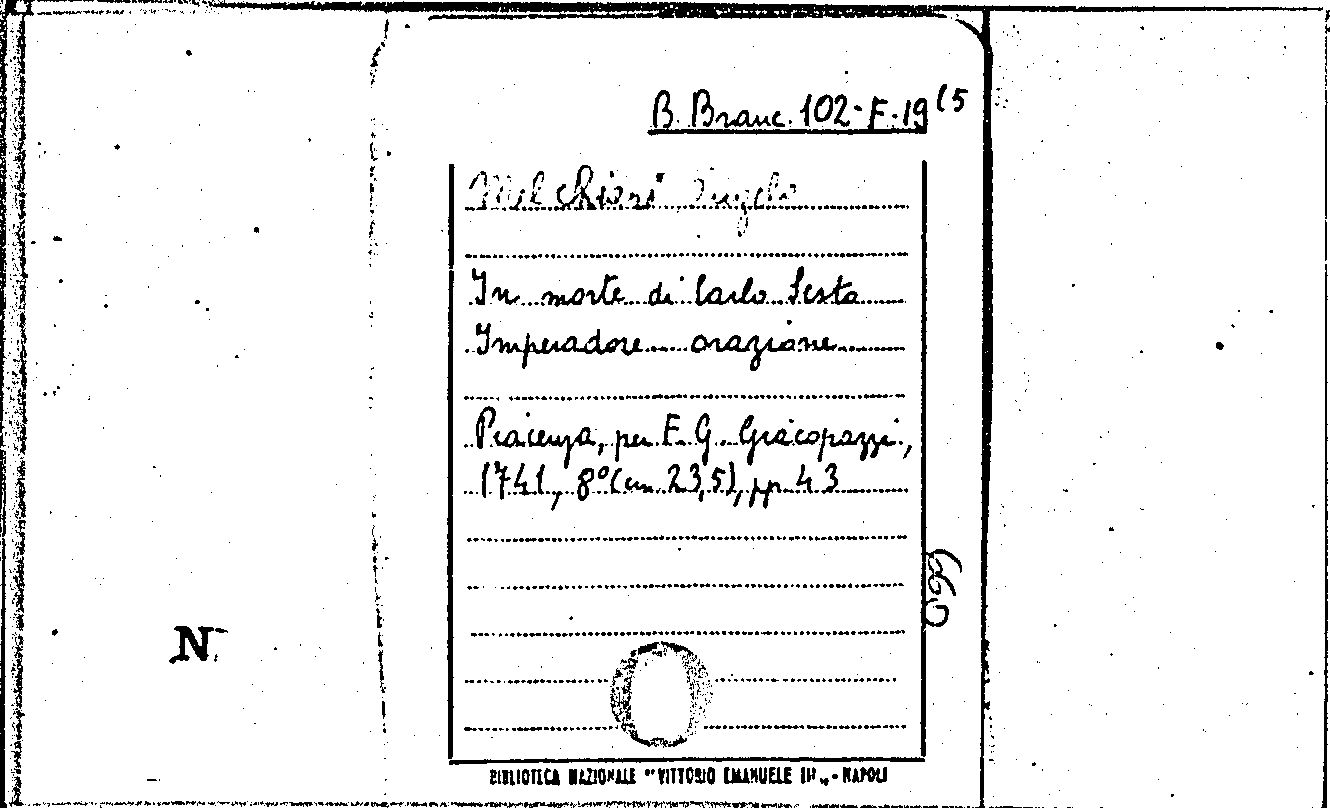 B. Branc. 102-F.19 (5
Melchiori Angelo
In morte di Carlo Sesto
Imperadore orazione
Piacenza, per F. G. Giacopazzi,
1741, 8º (cm 23,5), pp 43
660
N
BIBLIOTECA NAZIONALE "VITTORIO EMANUELE III" - NAPOLI